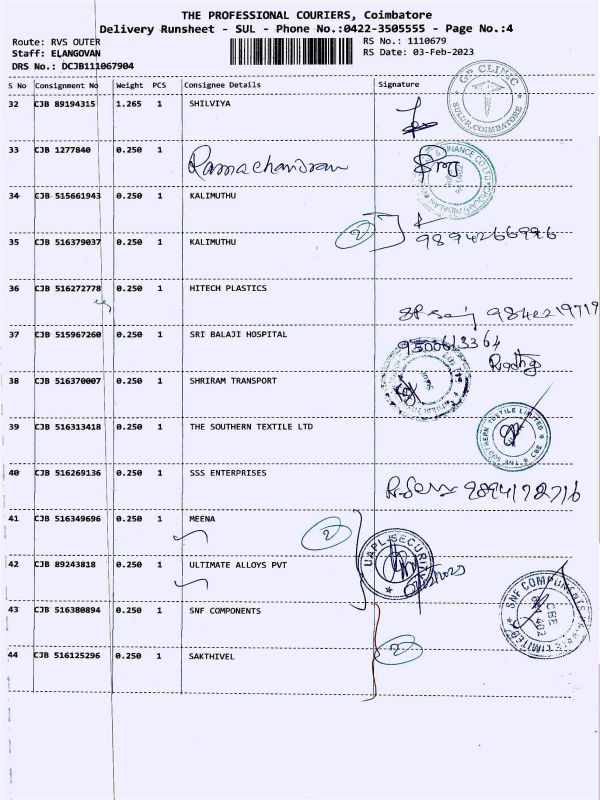 THE PROFESSIONAL COURIERS, Coimbatore
Delivery Runsheet - SUL - Phone No.:0422-3505555 - Page No.:4
Route: RVS OUTER
RS No.: 1110679
Staff: ELANGOVAN
RS Date: 03-Feb-2023
DRS No.: DCJB111067904
S No Consignment No Weight PCS Consignee Details Signature
32 CJB 89194315 1.265 1 SHILVIYA
GP CLINIC
SULUR, COIMBATORE
33 CJB 1277840 0.250 1 Ramachandran
34 CJB 515661943 0.250 1 KALIMUTHU
35 CJB 516379037 0.250 1 KALIMUTHU
2
9894266996
36 CJB 516272778 0.250 1 HITECH PLASTICS
9842219719
37 CJB 515967260 0.250 1 SRI BALAJI HOSPITAL
9500613364
38 CJB 516370007 0.250 1 SHRIRAM TRANSPORT
39 CJB 516313418 0.250 1 THE SOUTHERN TEXTILE LTD
THE SOUTHERN TEXTILE LIMITED
CBE
40 CJB 516269136 0.250 1 SSS ENTERPRISES
41 CJB 516349696 0.250 1 MEENA
2
UAPL SECURITY
42 CJB 89243818 0.250 1 ULTIMATE ALLOYS PVT
43 CJB 516380894 0.250 1 SNF COMPONENTS
SNF COMPONENTS
LIMITED
CBE
402
44 CJB 516125296 0.250 1 SAKTHIVEL
2